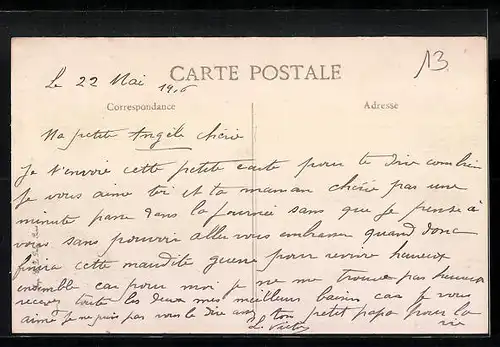 13
CARTE POSTALE
Le 22 Mai 1916
Correspondance
Adresse
Ma petite Angèle chérie
Je t'envoie cette petite carte pour te dire combien
Je vous aime toi et ta maman chérie pas une
minute passe dans la journée sans que je pense à
vous sans pouvoir aller vous embrasser quand donc
finira cette maudite guerre pour revivre heureux
ensemble car pour moi je ne me trouve pas heureux
recevez toute les deux mes meilleurs baisers car je vous
aime je ne puis pas vous le dire ton petit papa pour la
vie